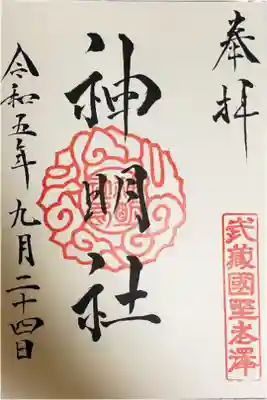 奉拝
武藏國野老澤
神明社
令和五年九月二十四日